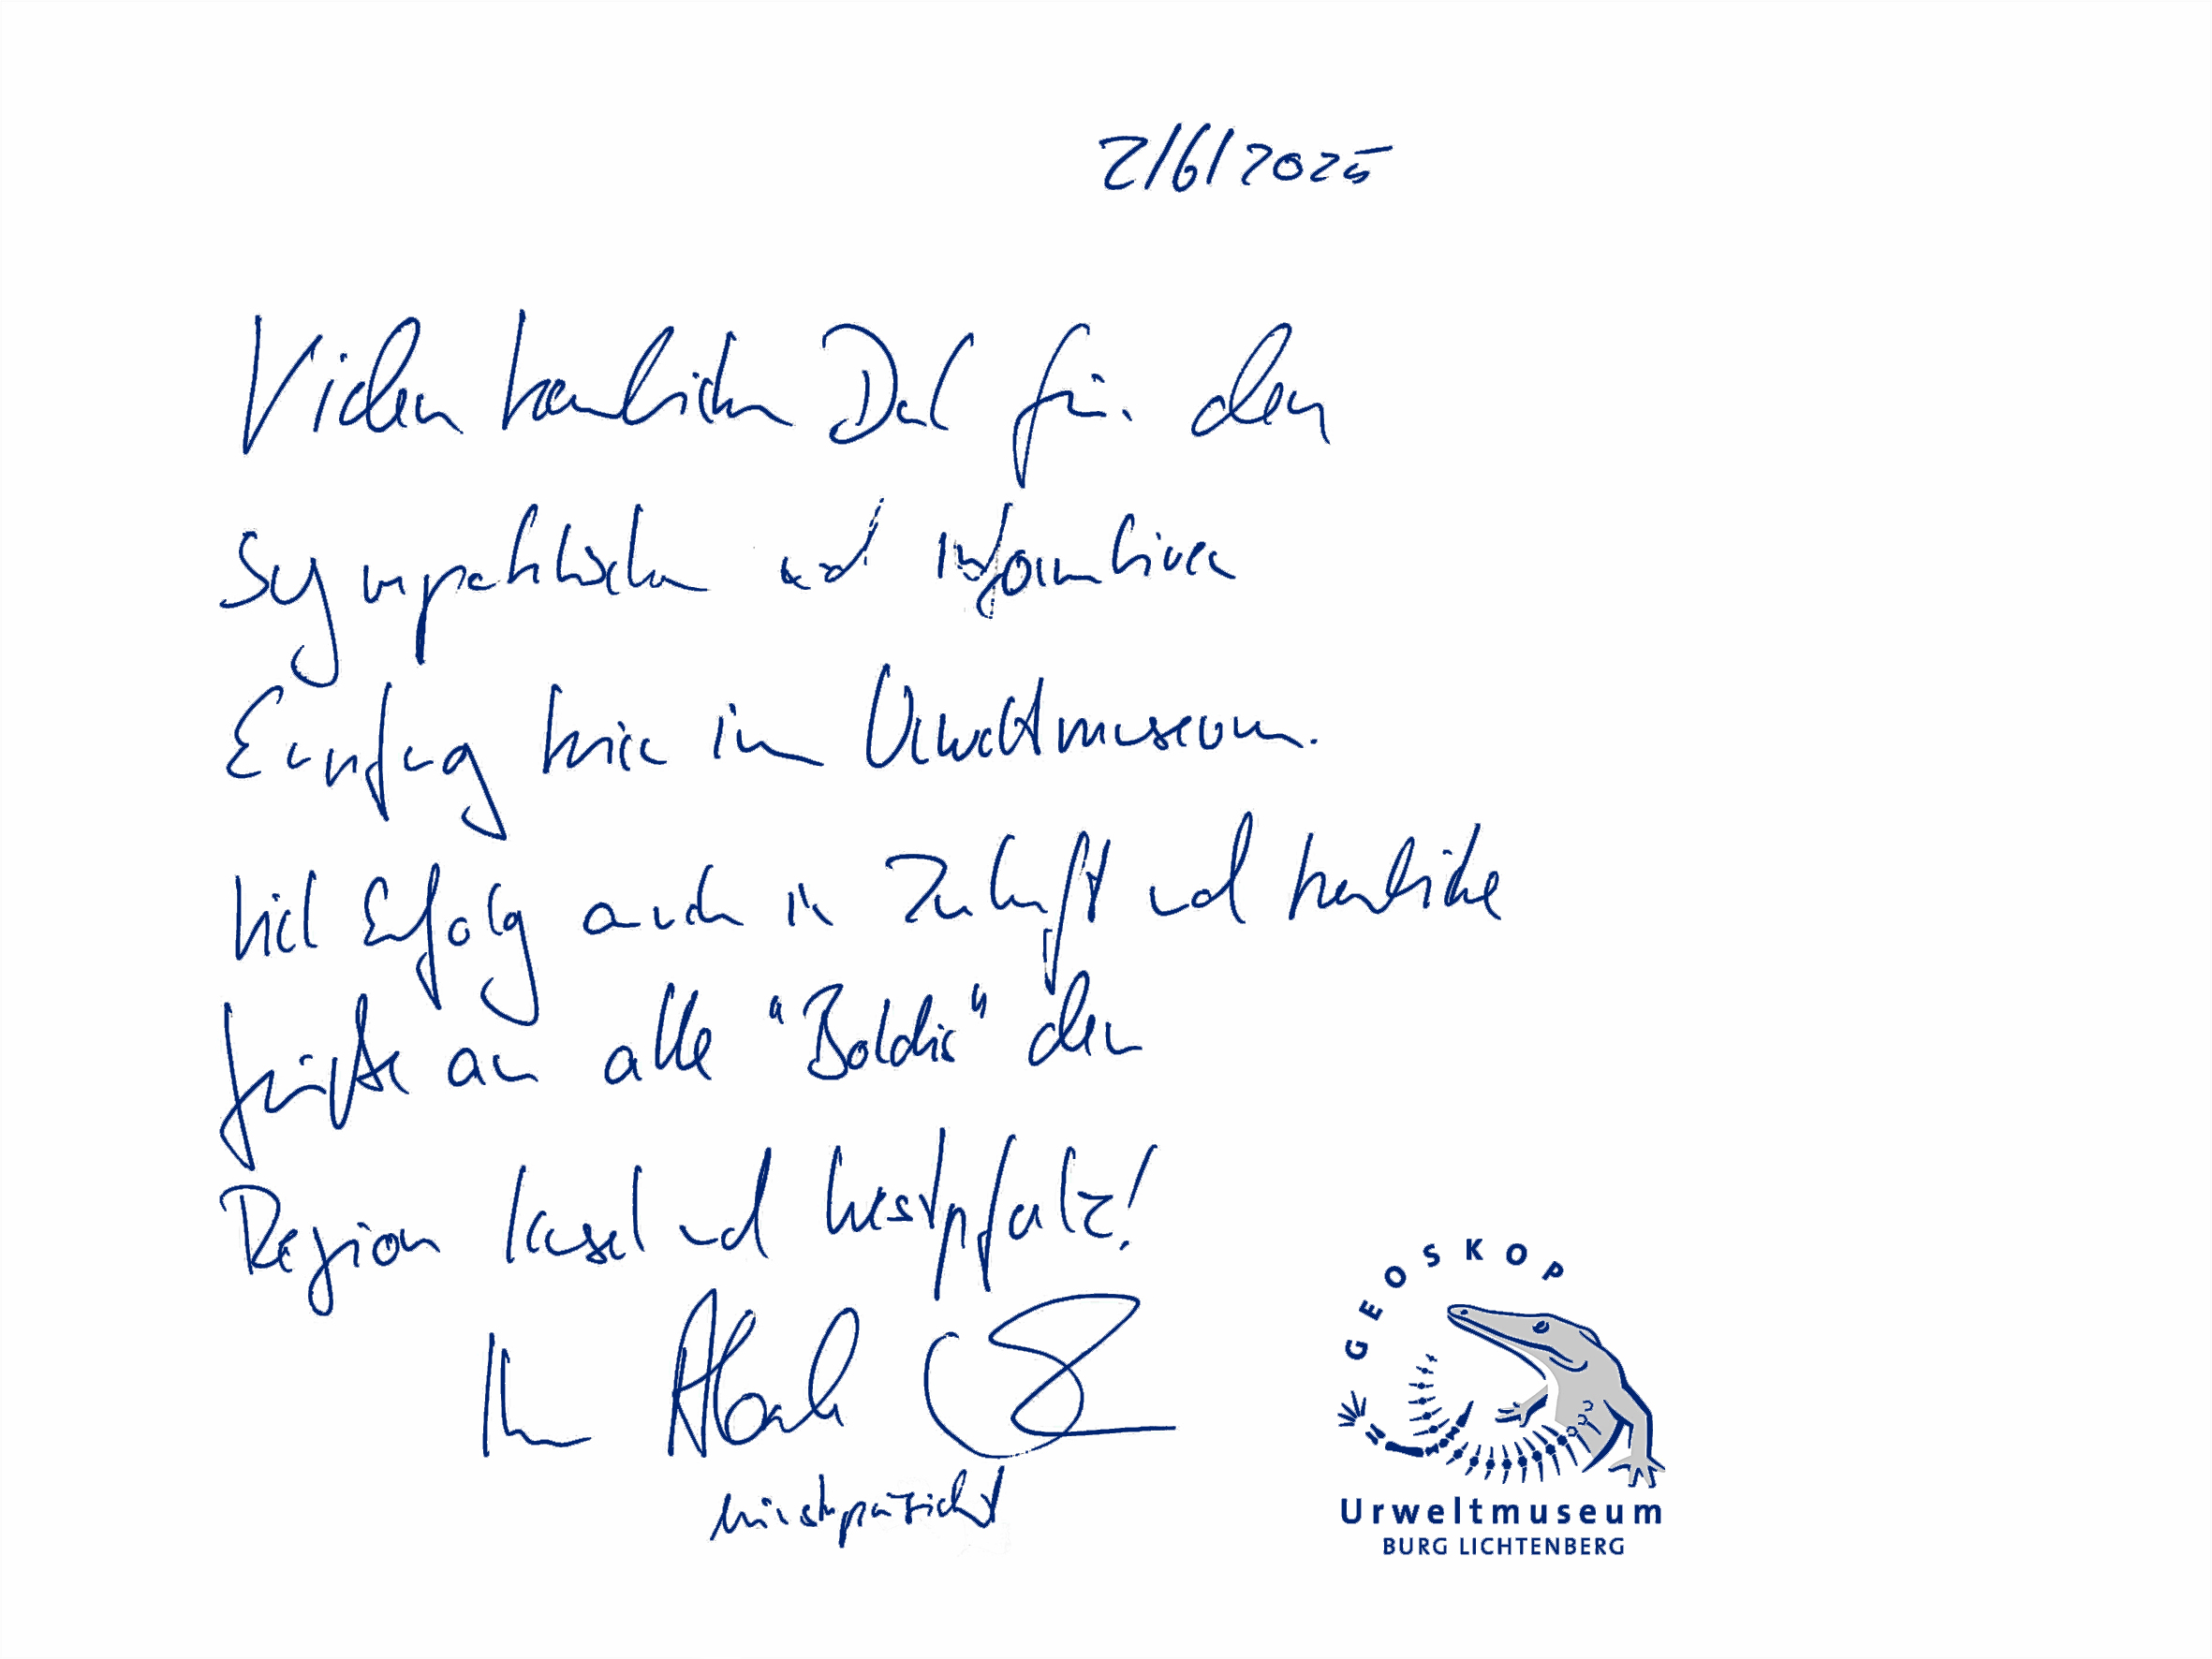 2/6/2025
Vielen herzlichen Dank für den
sympathischen und informativen
Empfang hier im Urweltmuseum.
Viel Erfolg auch in Zukunft und herzliche
Grüße an alle "Boldis" der
Region Kusel und Westpfalz!
Ihr
Ministerpräsident
GEOSKOP
Urweltmuseum
BURG LICHTENBERG